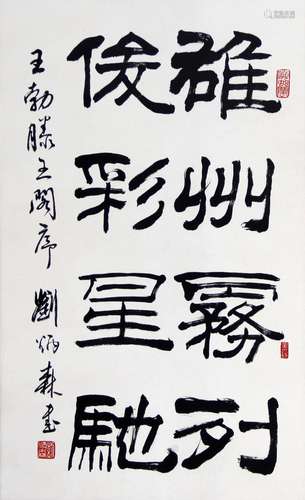 雄州霧列
俊彩星馳
王勃滕王阁序 劉炳森書